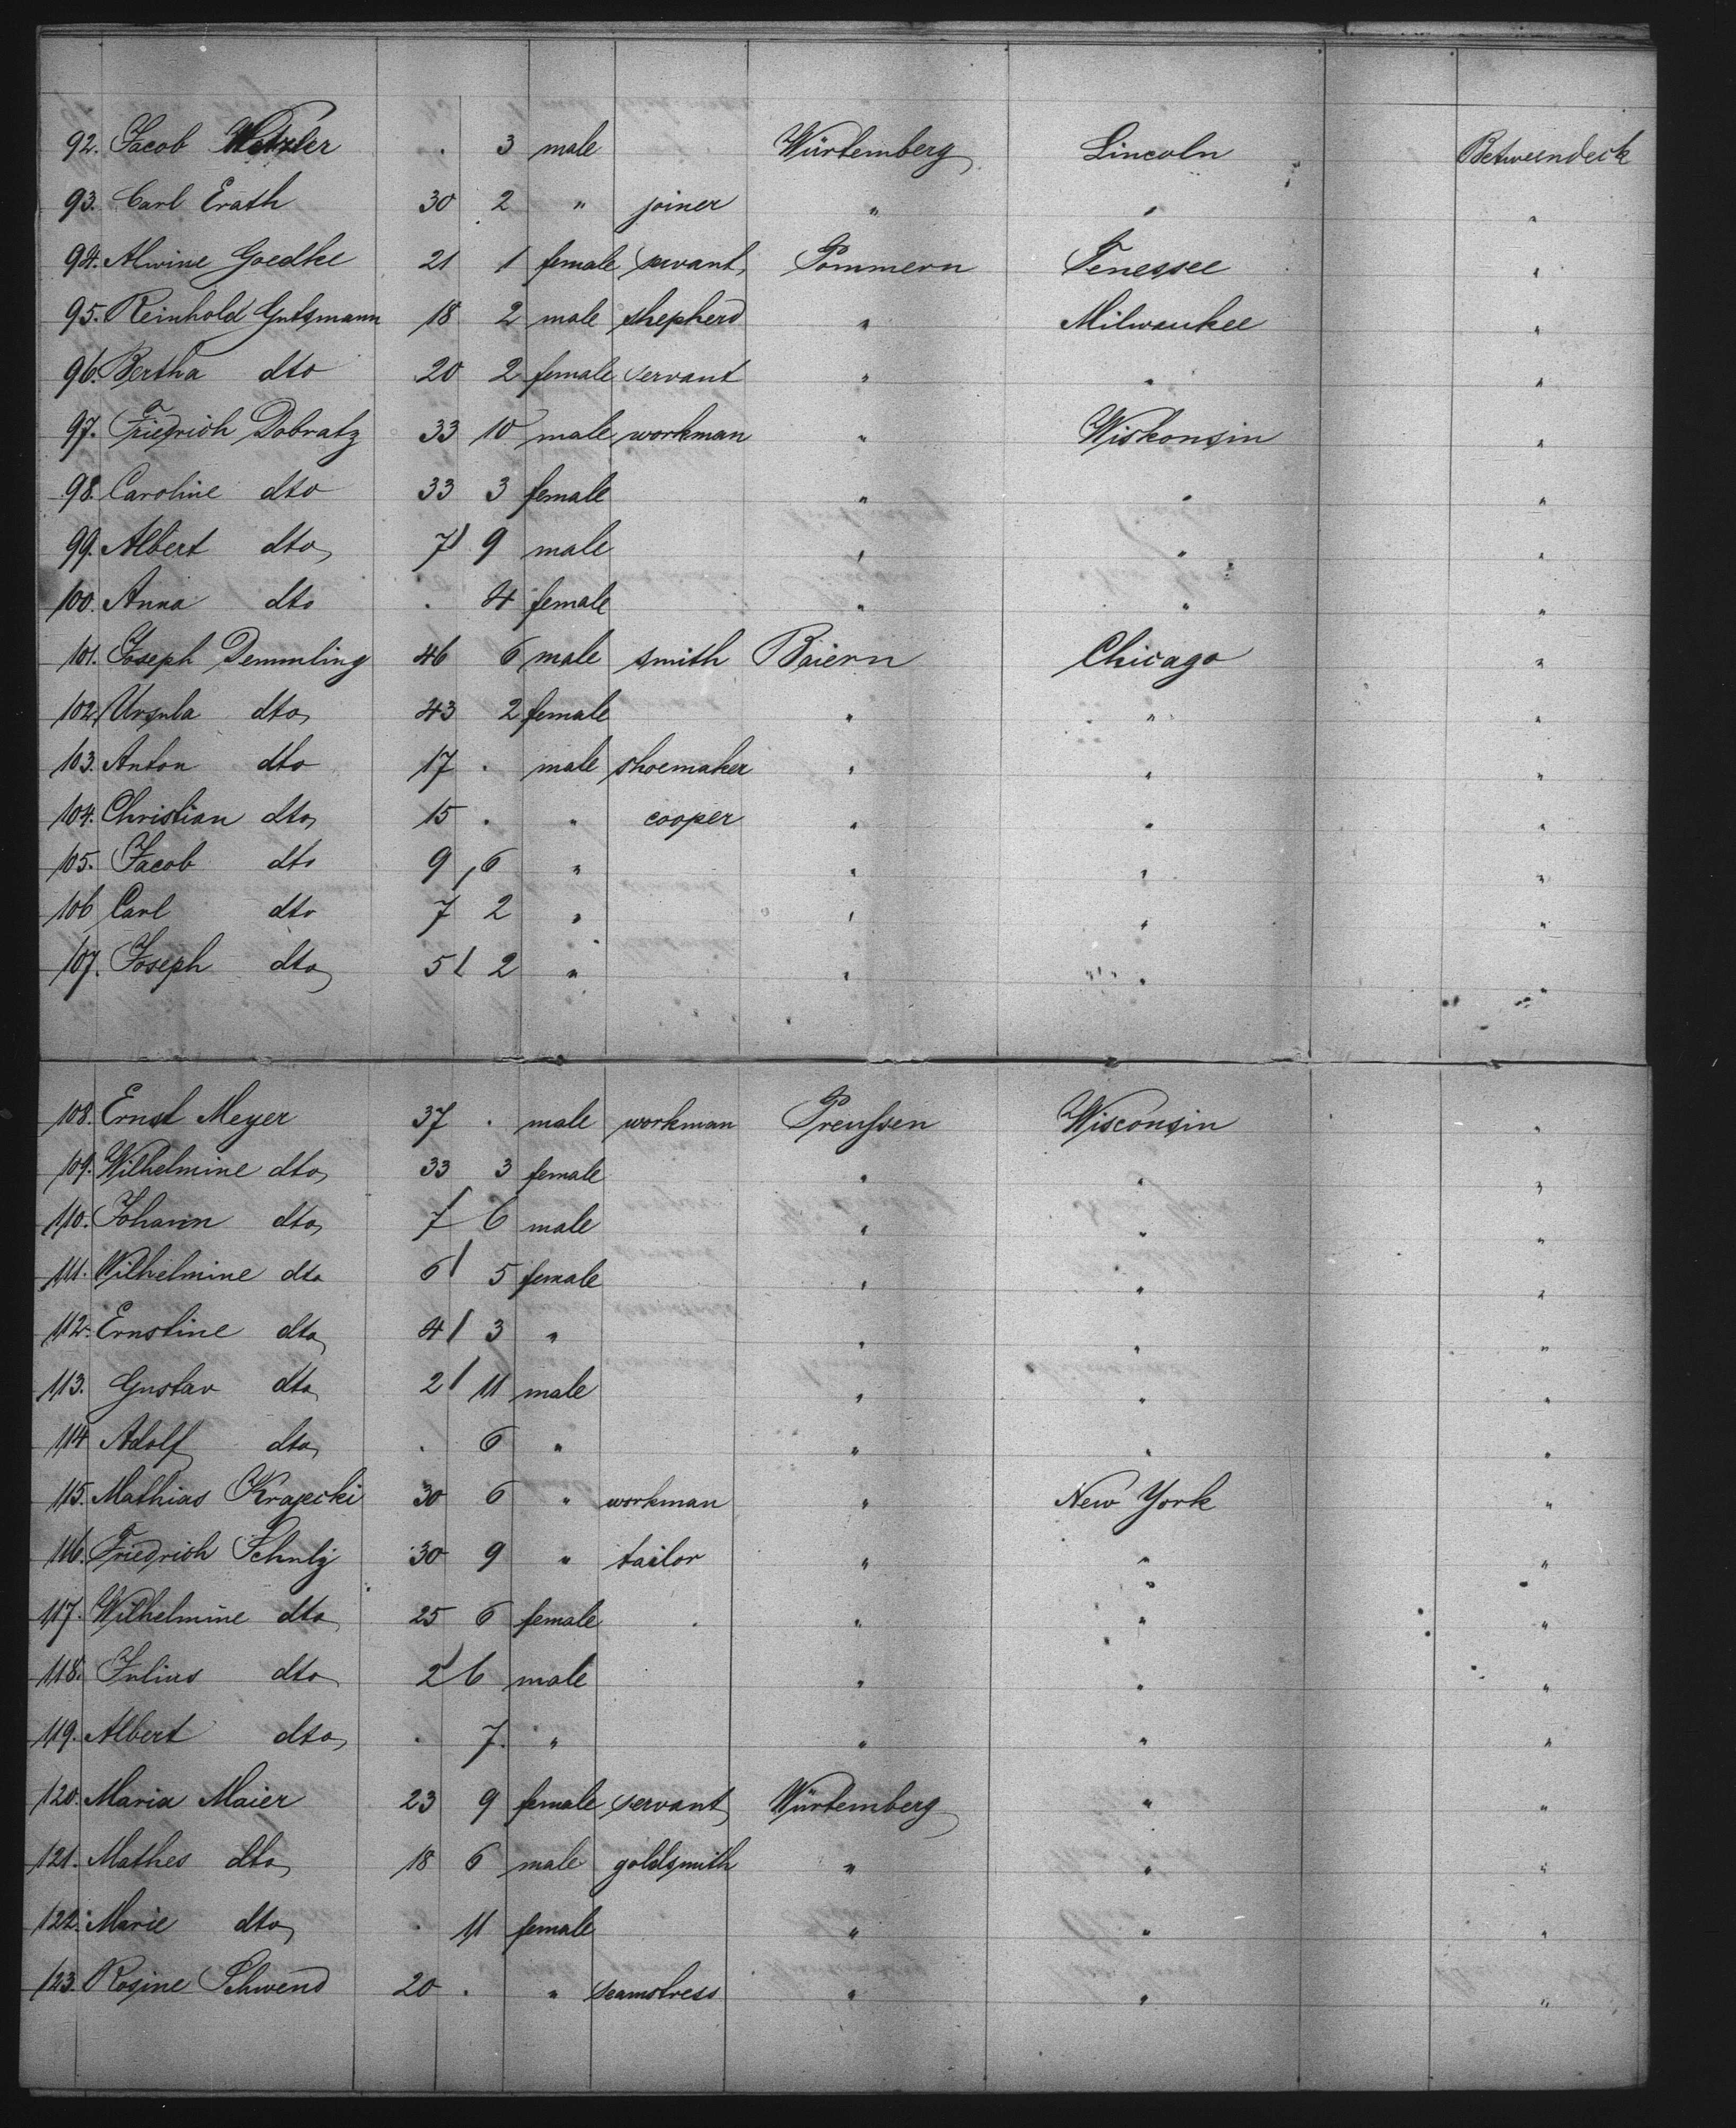 92. Jacob Wetzler . 3 male Würtemberg Lincoln Betweendeck
93. Carl Erath 30 2 " joiner " " "
94. Alwine Goedtke 21 1 female servant Pommern Tenessee "
95. Reinhold Gutzmann 18 2 male shepherd " Milwaukee "
96. Bertha dto 20 2 female servant " " "
97. Friedrich Dobratz 33 10 male workman " Wiskonsin "
98. Caroline dto 33 3 female " " "
99. Albert dto 7/ 9 male " " "
100. Anna dto . 4 female " " "
101. Joseph Demmling 46 6 male smith Baiern Chicago "
102. Ursula dto 43 2 female " " "
103. Anton dto 17 . male shoemaker " " "
104. Christian dto 15 . " cooper " " "
105. Jacob dto 9 6 " " " "
106 Carl dto 7 2 " " " "
107. Joseph dto 5/ 2 " " " "
108. Ernst Meyer 37 . male workman Preußen Wisconsin "
109. Wilhelmine dto 33 3 female " " "
110. Johann dto 7/ 6 male " " "
111. Wilhelmine dto 6/ 5 female " " "
112. Ernstine dto 4/ 3 " " " "
113. Gustav dto 2/ 11 male " " "
114 Adolf dto . 6 " " " "
115. Mathias Krajecki 30 6 " workman " New York "
116. Friedrich Schulz 30 9 " tailor " " "
117. Wilhelmine dto 25 6 female " " "
118. Julius dto 2/ 6 male " " "
119. Albert dto . 7. " " " "
120. Maria Maier 23 9 female servant Würtemberg " "
121. Mathes dto 18 6 male goldsmith " " "
122. Marie dto . 11 female " " "
123. Rosine Schwend 20 . " seamstress " " "